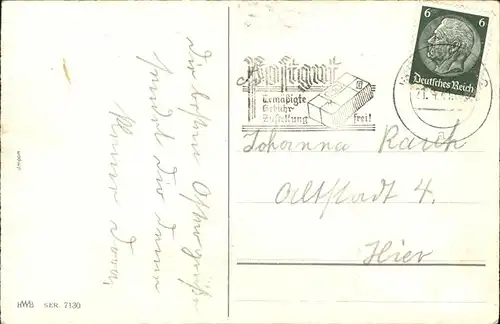 Die besten Ostergrüße
sendet Dir Deine
Dora,
Import
HWB SER. 7130
Postgut
Ermäßigte
Gebühr
Zustellung frei!
6 6
Deutsches Reich
Johanna Rasch
Altstadt 4.
Hier